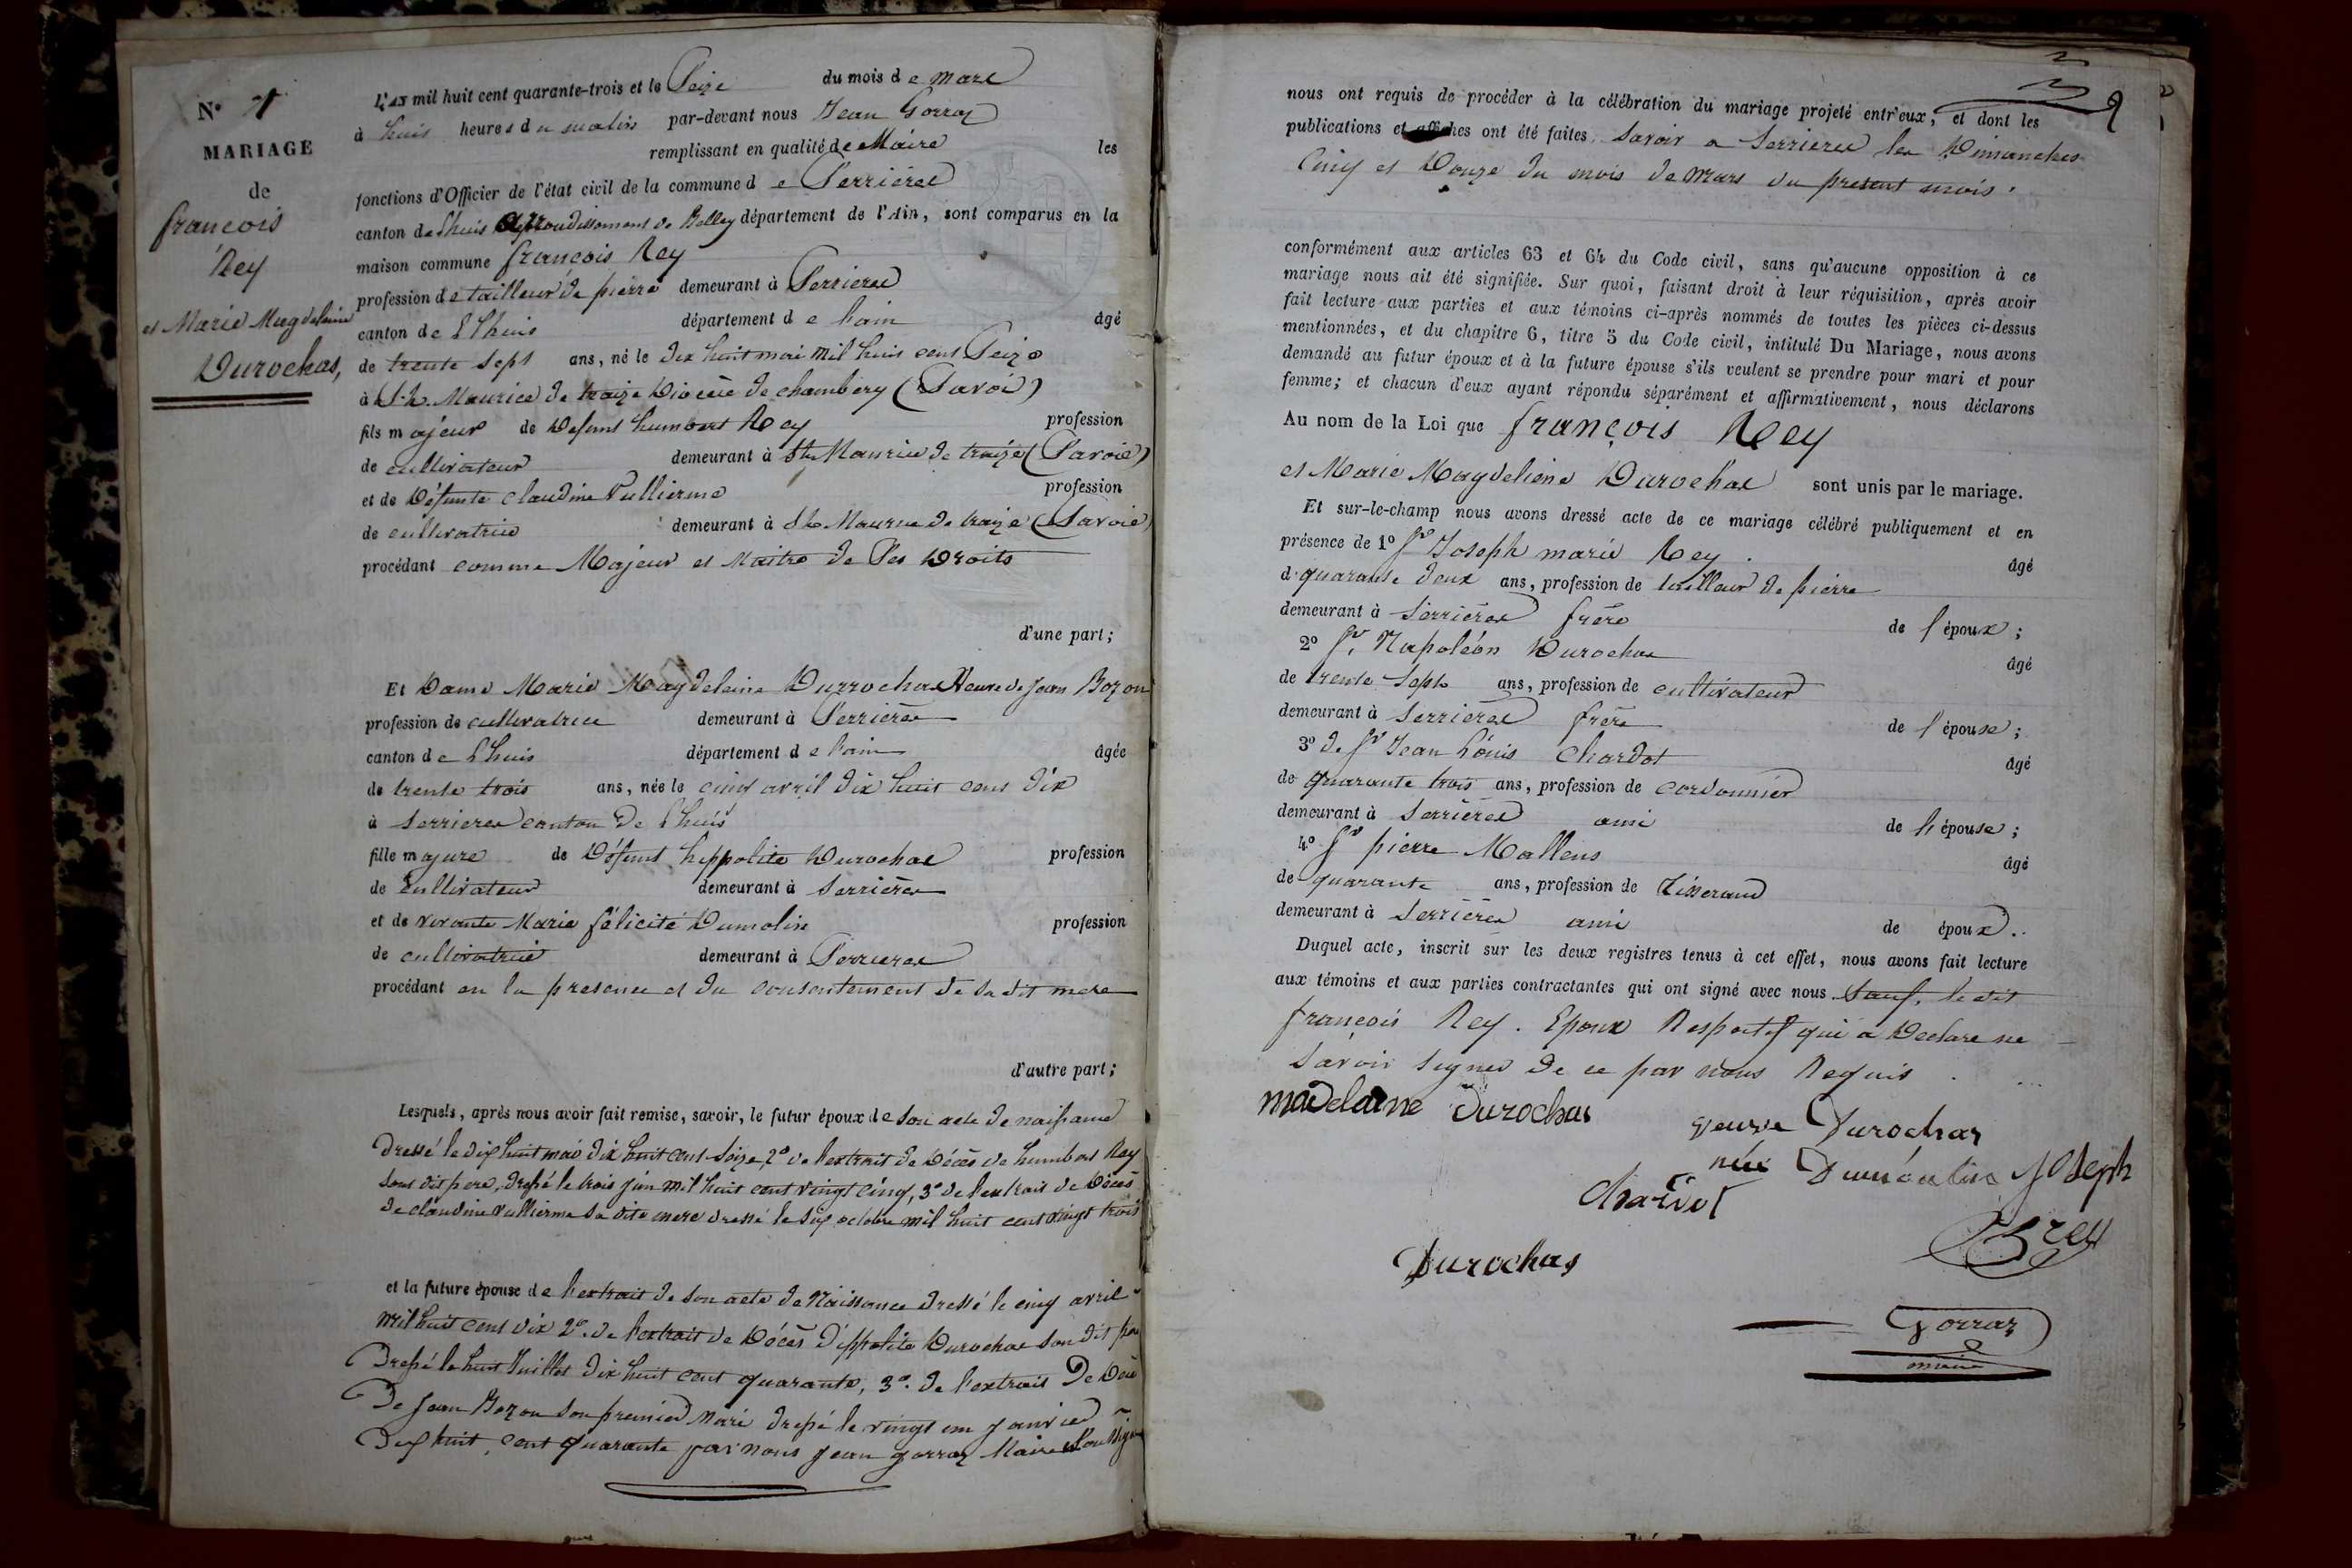 N° 7
MARIAGE
de
françois
Rey
et Marie Magdelaine
Durochas,
L'AN mil huit cent quarante-trois et le Seize du mois de mars
à huit heures du matin par-devant nous Jean Gorraz
remplissant en qualité de Maire les
fonctions d'Officier de l'état civil de la commune de Serrières
canton de Lhuis arrondissement de Belley département de l'Ain, sont comparus en la
maison commune françois Rey
profession de tailleur de pierre demeurant à Serrieres
canton de Lhuis département de l'ain âgé
de trente sept ans, né le dix huit mai mil huit cent Seize
à St. Maurice de traize Diocèse de chambery (Savoi)
fils majeur de Defunt humbert Rey profession
de cultivateur demeurant à St Maurice de traize (Savoie)
et de Défunte claudine Vullierme profession
de cultivatrice demeurant à St Maurice de traize (Savoie)
procédant comme Majeur et Maitre de Ses Droits
d'une part;
Et Dame Marie Magdelaine Durrochas Veuve de Jean Bozon
profession de cultivatrice demeurant à Serrières
canton de Lhuis département de l'ain âgée
de trente trois ans, née le cinq avril dix huit cent dix
à Serrieres canton de Lhuis
fille majure de Défunt hyppolite Durochas profession
de cultivateur demeurant à Serrières
et de vivante Marie félicité Dumolin profession
de cultivatrice demeurant à Serrieres
procédant en la presence et du consentement de sa dit mere
d'autre part;
Lesquels, après nous avoir fait remise, savoir, le futur époux de son acte de naissance
dressé le dix huit mai dix huit cent seize, 2° de l'extrait de décès de humbert Rey
sont dit pere, dressé le trois juin mil huit cent vingt cinq, 3° de l'extrait de décès
de claudine vullierme sa dite mere dressé le six octobre mil huit cent vingt trois
et la future épouse de l'extrait de son acte de Naissance dressé le cinq avril
mil huit cent dix 2°. de l'extrait de Décès d'ippolite Durochas son dit pere
Dressé le huit Juillet dix huit cent quarante, 3°. de l'extrait De Décè
De Jean Bozon son premier mari dressé le vingt un janvier
Dix huit cent quarante par nous jean gorraz Maire Soussigné
nous ont requis de procéder à la célébration du mariage projeté entr'eux, et dont les
publications et affiches ont été faites, Savoir a Serrieres les Dimanches
Cinq et Douze du mois de Mars du present mois.
conformément aux articles 63 et 64 du Code civil, sans qu'aucune opposition à ce
mariage nous ait été signifiée. Sur quoi, faisant droit à leur réquisition, après avoir
fait lecture aux parties et aux témoins ci-après nommés de toutes les pièces ci-dessus
mentionnées, et du chapitre 6, titre 5 du Code civil, intitulé Du Mariage, nous avons
demandé au futur époux et à la future épouse s'ils veulent se prendre pour mari et pour
femme; et chacun d'eux ayant répondu séparément et affirmativement, nous déclarons
Au nom de la Loi que françois Rey
et Marie Magdeliene Durochas sont unis par le mariage.
Et sur-le-champ nous avons dressé acte de ce mariage célébré publiquement et en
présence de 1° Sr Joseph marie Rey. âgé
d quarante deux ans, profession de tailleur de pierre
demeurant à Serrières frère de l'époux;
2° Sr. Napoléon Durochas âgé
de trente Sept ans, profession de cultivateur
demeurant à Serrières frère de l'épouse;
3° de Sr Jean Louis Chardot âgé
de quarante trois ans, profession de cordonnier
demeurant à Serrières ami de l'épouse;
4° Sr pierre Mallens âgé
de quarante ans, profession de Tisserand
demeurant à Serrières ami de époux..
Duquel acte, inscrit sur les deux registres tenus à cet effet, nous avons fait lecture
aux témoins et aux parties contractantes qui ont signé avec nous Sauf, le dit
françois Rey. Epoux Respectif qui a Declare ne
Savoir signer de ce par nous Requis.
madelaine Durochas
veuve Durochas
née Dumoulin Joseph
Rey
Durochas
Gorraz
maire